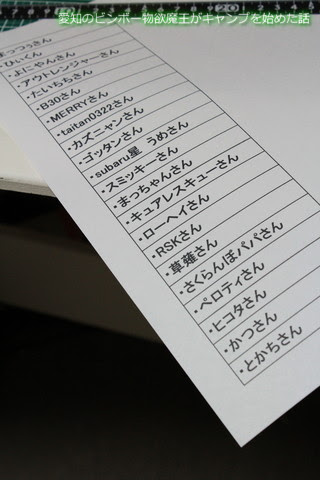 愛知のビンボー物欲魔王がキャンプを始めた話
・ひぃくんさん
・よにやんさん
・アウトレンジャーさん
・たいちちさん
・B30さん
・MERRYさん
・taitan0322さん
・カズニャンさん
・ゴッタンさん
・subaru星 うめさん
・スミッキーさん
・まっちゃんさん
・キュアレスキューさん
・ローヘイさん
・RSKさん
・草薙さん
・さくらんぼパパさん
・ペロティさん
・ヒコタさん
・かつさん
・とかちさん